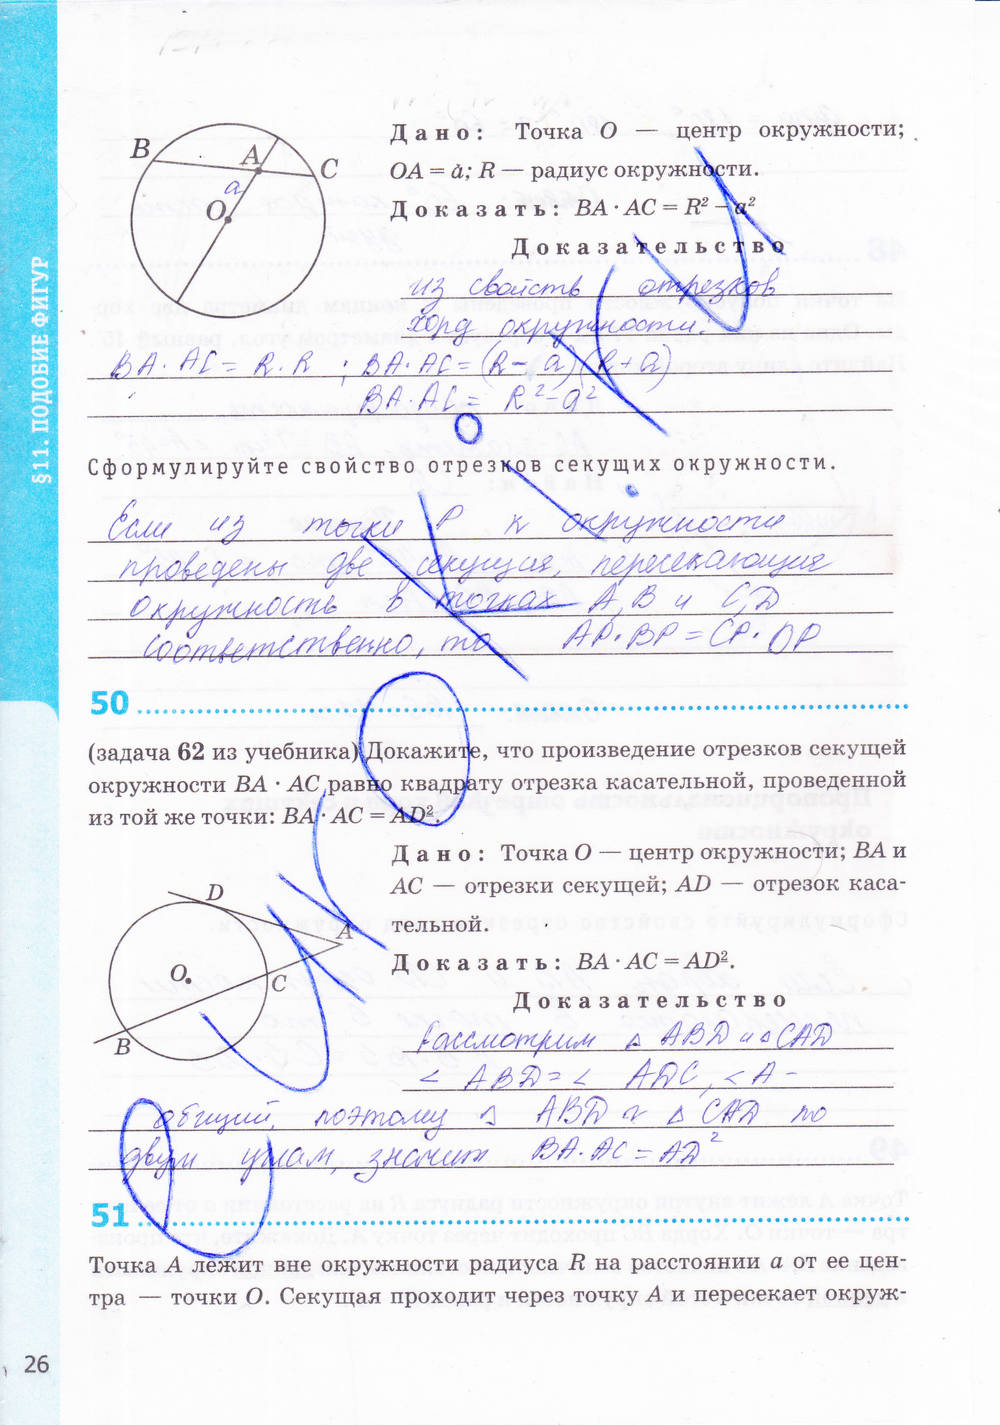 §11. ПОДОБИЕ ФИГУР
B
A
C
a
O
Дано: Точка O — центр окружности;
OA = a; R — радиус окружности.
Доказать: BA · AC = R² – a²
Доказательство
из свойств отрезков
хорд окружности:
BA · AC = R · R ; BA · AC = (R – a)(R + a)
BA · AC = R² – a²
Сформулируйте свойство отрезков секущих окружности.
Если из точки P к окружности
проведены две секущие, пересекающие
окружность в точках A, B и C, D
соответственно, то AP · BP = CP · DP
50
(задача 62 из учебника) Докажите, что произведение отрезков секущей
окружности BA · AC равно квадрату отрезка касательной, проведенной
из той же точки: BA · AC = AD².
Дано: Точка O — центр окружности; BA и
AC — отрезки секущей; AD — отрезок каса-
тельной.
Доказать: BA · AC = AD².
Доказательство
D
A
O
C
B
Рассмотрим △ ABD и △ CAD
< ABD = < ADC, < A –
общий, поэтому △ ABD ~ △ CAD по
двум углам, значит BA · AC = AD²
51
Точка A лежит вне окружности радиуса R на расстоянии a от ее цен-
тра — точки O. Секущая проходит через точку A и пересекает окруж-
26